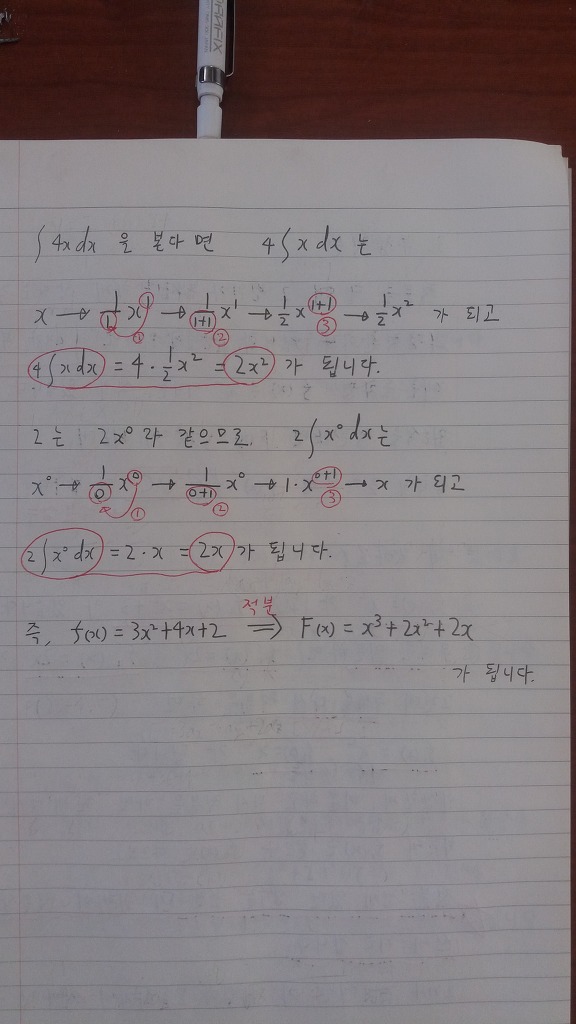 ∫4x dx 을 본다면 4∫x dx 는
x → 1/1 x¹ → 1/(1+1) x¹ → 1/2 x¹⁺¹ → 1/2 x² 가 되고
① ② ③
4∫x dx = 4 · 1/2 x² = 2x² 가 됩니다.
2는 2x⁰ 라 같으므로 2∫x⁰ dx는
x⁰ → 1/0 x⁰ → 1/(0+1) x⁰ → 1·x⁰⁺¹ → x 가 되고
① ② ③
2∫x⁰ dx = 2 · x = 2x 가 됩니다.
적분
즉, f(x) = 3x²+4x+2 ⟹ F(x) = x³+2x²+2x
가 됩니다.